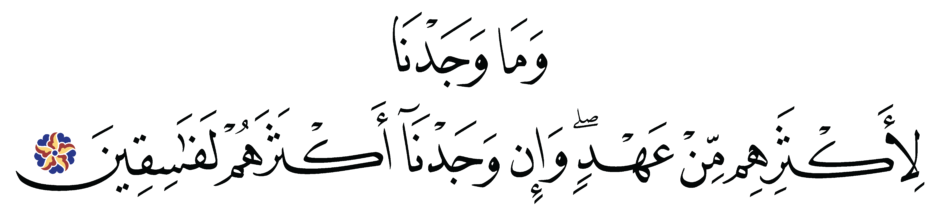 وَمَا وَجَدْنَا
لِأَكْثَرِهِم مِّنْ عَهْدٍۖ وَإِن وَجَدْنَآ أَكْثَرَهُمْ لَفَٰسِقِينَ